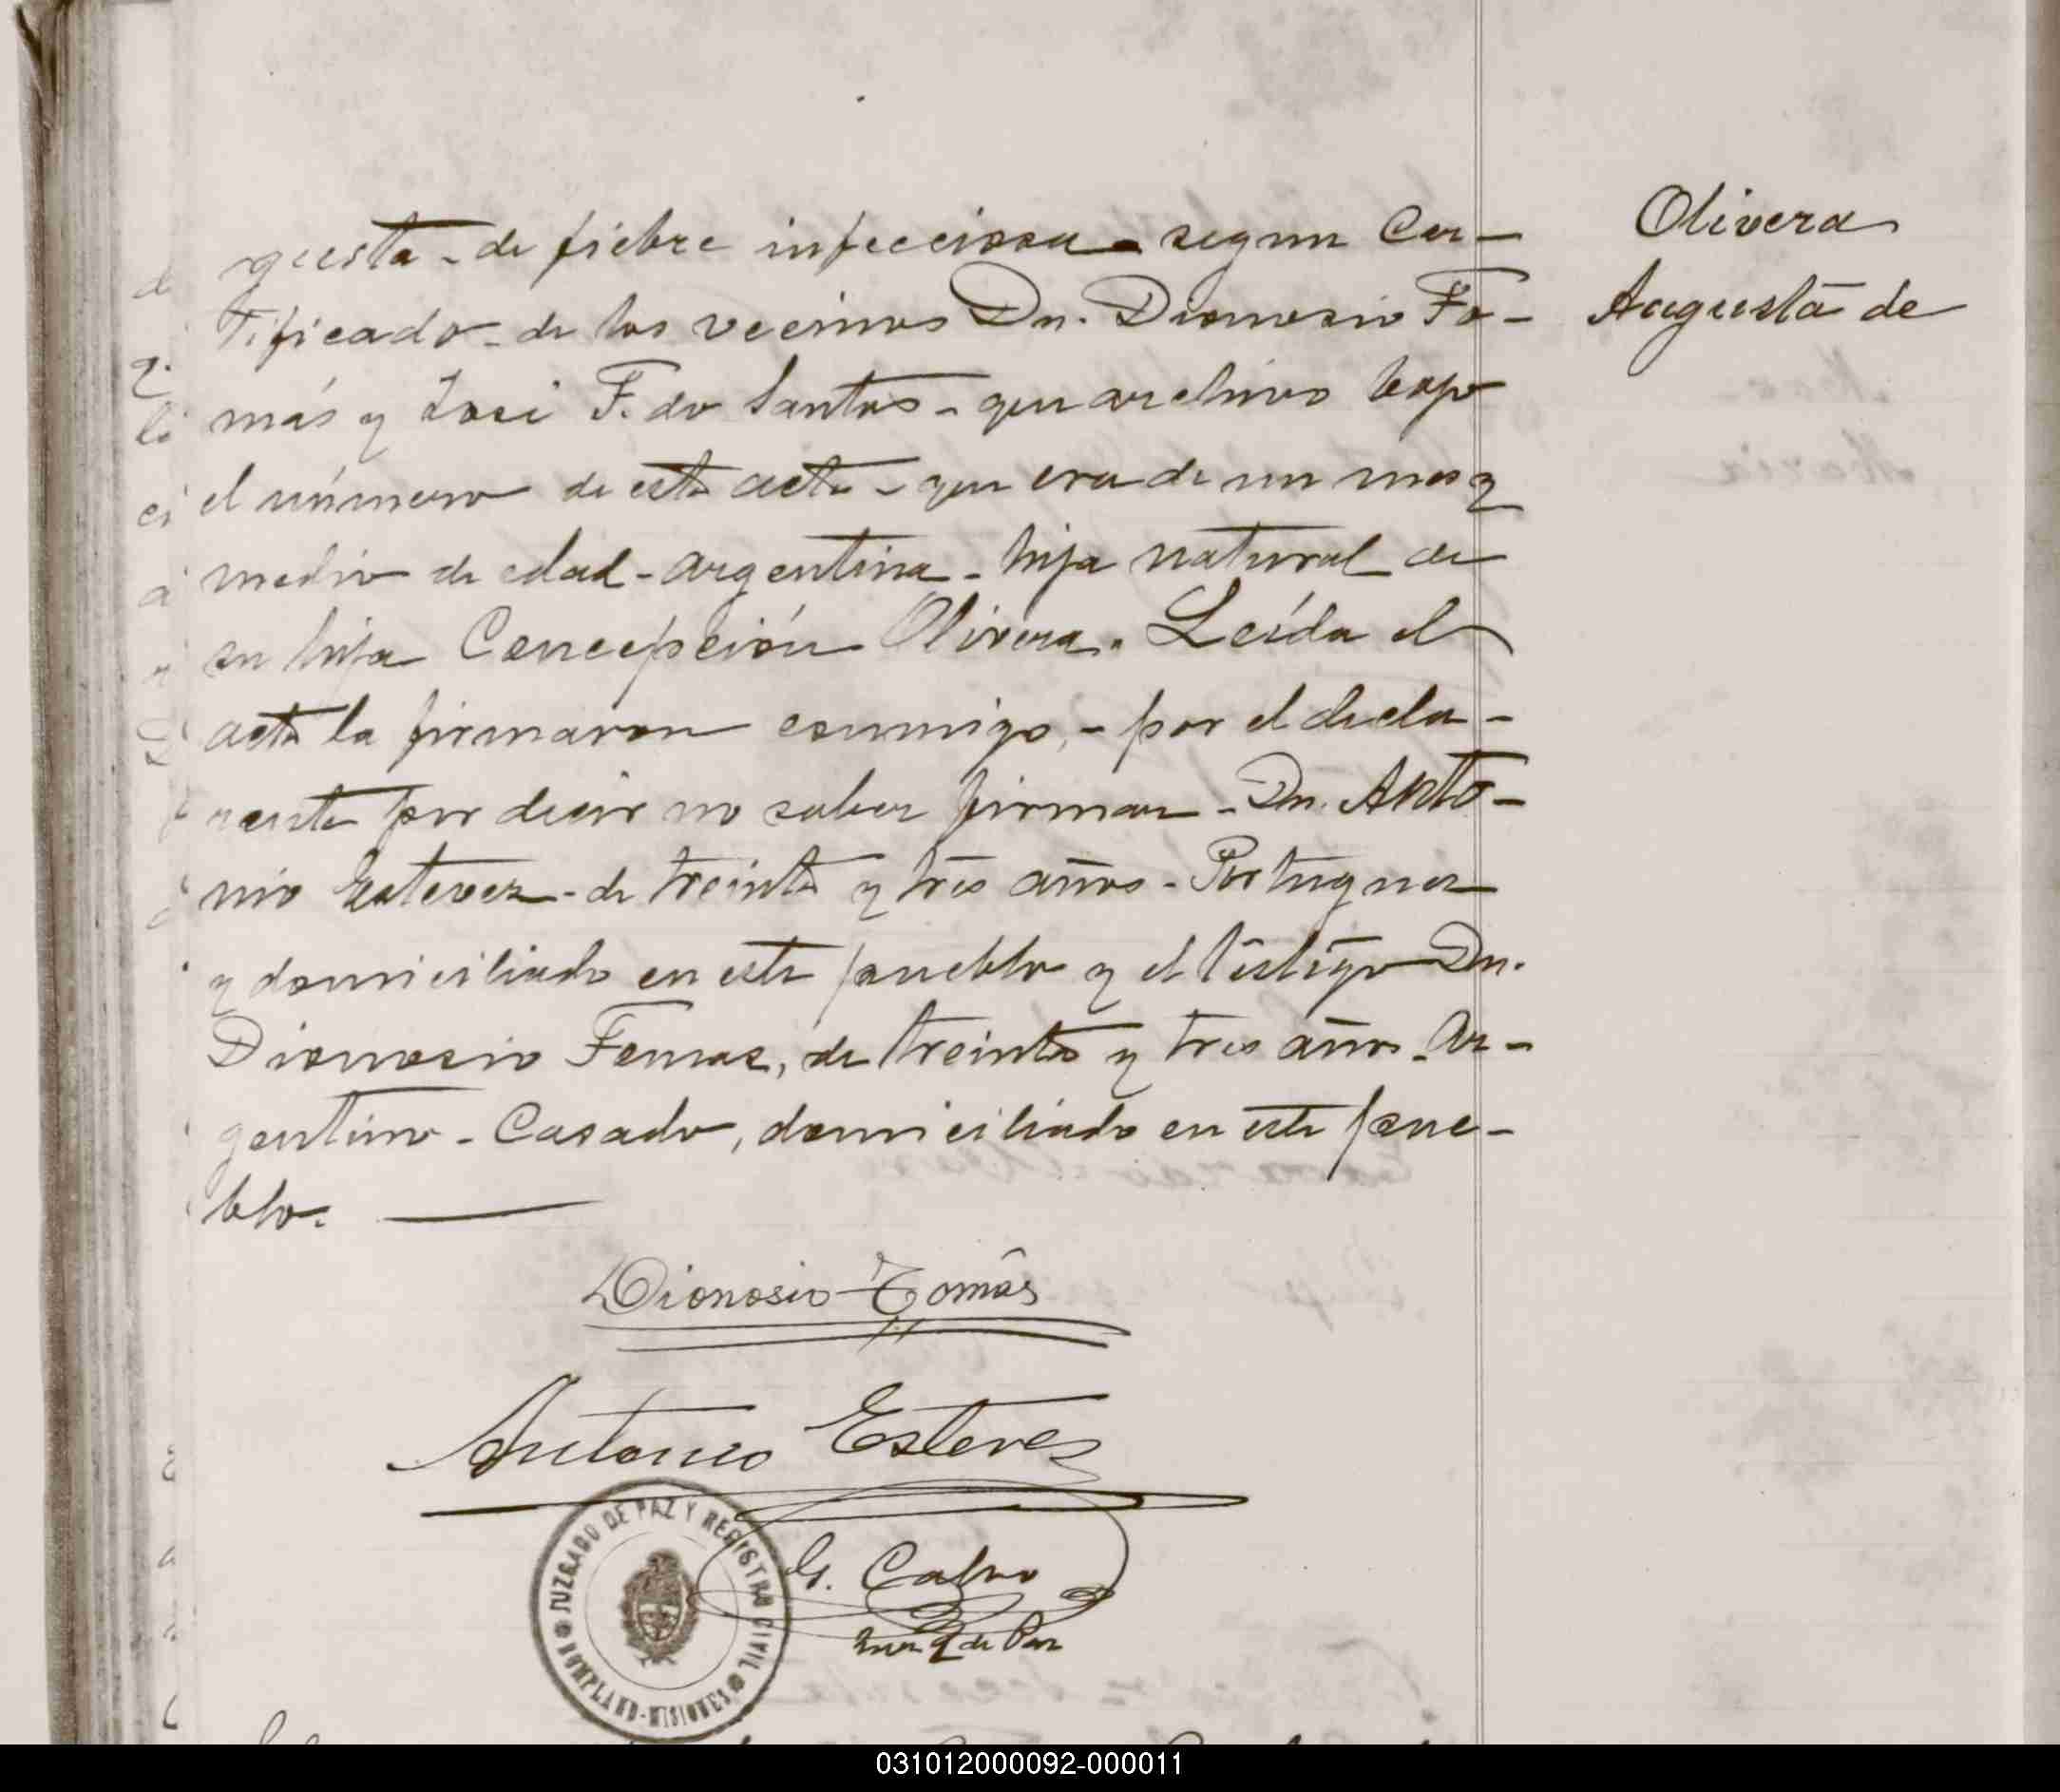 Olivera
Augusta de
gusta - de fiebre infecciosa - segun Cer-
tificado - de los vecinos Dn. Dionosio To-
más y José F. do Santos - que archivo bajo
el número de esta acta - que era de un mes y
medio de edad - argentina - hija natural de
su hija Concepción Olivera. Leída el
acta la firmaron conmigo, - por el decla-
rante por decir no saber firmar - Dn. Anto-
nio Estevez - de treinta y tres años - Portugues
y domiciliado en este pueblo y el testigo Dn.
Dionosio Tomas, de treinta y tres años - Ar-
gentino - Casado, domiciliado en este pue-
blo.
Dionosio Tomás
Antonio Estevez
G. Calvo
Juez de Paz
JUZGADO DE PAZ Y REGISTRO CIVIL
BOMPLAND-MISIONES
031012000092-000011